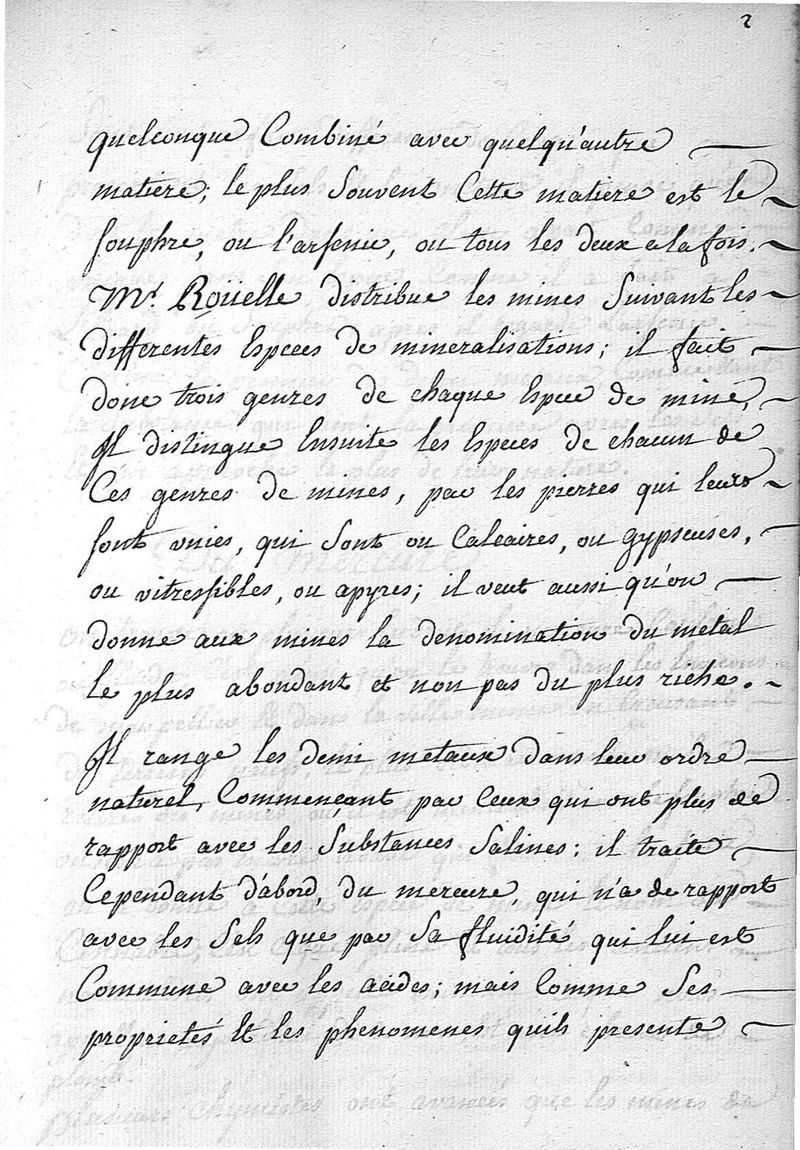 2
quelconque Combiné avec quelqu'autre
matiere; le plus Souvent Cette matiere est le
souphre, ou l'arsenic, ou tous les deux a la fois.
Mr. Roüelle distribue les mines Suivant les
differentes Especes de mineralisations; il fait
donc trois genres de chaque Espece de mine,
Il distingue Ensuite les Especes de chacun de
Ces genres de mines, par les pierres qui leurs
sont unies, qui Sont ou Calcaires, ou gypseuses,
ou vitrescibles, ou apyres; il veut aussi qu'on
donne aux mines la denomination du metal
le plus abondant et non pas du plus riche.
Il range les demi metaux dans leur ordre
naturel, Commençant par Ceux qui ont plus de
rapport avec les Substances Salines: il traite
Cependant d'abord, du mercure, qui n'a de rapport
avec les Sels que par Sa fluidité qui lui est
Commune avec les acides; mais Comme Ses
proprietés Et les phenomenes quils presente